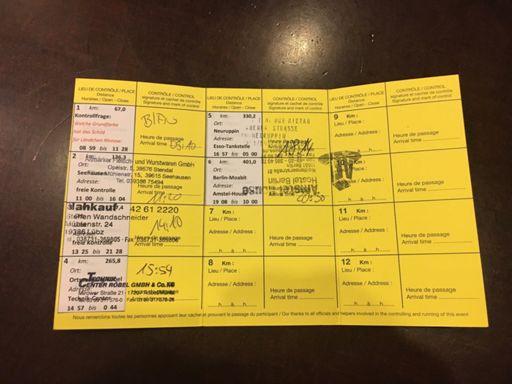 LIEU DE CONTRÔLE / PLACE
Distance
Horaires / Open - Close
CONTRÔLE / CONTROL
signature et cachet de contrôle
Signature and mark of control
LIEU DE CONTRÔLE / PLACE
Distance
Horaires / Open - Close
CONTRÔLE / CONTROL
signature et cachet de contrôle
Signature and mark of control
LIEU DE CONTRÔLE / PLACE
Distance
Horaires / Open - Close
CONTRÔLE / CONTROL
signature et cachet de contrôle
Signature and mark of control
1 km: 67,0
Kontrollfrage:
Welche Grundfarbe
hat das Schild
08 59 bis 11 28
BLAU
Heure de passage
Arrival time
09:10
2 km: 136,3
Ort:
Seehausen
freie Kontrolle
11 00 bis 16 04
Altmärker Fleisch- und Wurstwaren GmbH
39576 Stendal
39615 Seehausen
Heure de passage
11:20
Nahkauf
42 61 2220
Steffen Wandschneider
Mühlenstr. 24
19386 Lübz
freie Kontrolle
13 25 bis 21 28
14:10
4 km: 265,8
Ort:
Adresse:
14 57 bis 0 44
CENTER RÖBEL GMBH & Co.KG
15:54
Heure de passage
Arrival time
5 km: 330,2
Ort:
Neuruppin
Adresse:
Esso-Tankstelle
16 57 bis 05 00
Heure de passage
6 km: 401,0
Ort:
Berlin-Moabit
Adresse:
19 08 bis 10 00
Hostel Berlin
7 Km :
Lieu / Place :
Adresse / Address :
h à h
Heure de passage
Arrival time
8 Km :
Lieu / Place :
Adresse / Address :
h à h
Heure de passage
Arrival time
9 Km :
Lieu / Place :
Adresse / Address :
h à h
Heure de passage
Arrival time
10
Lieu / Place :
Adresse / Address :
h à h
Heure de passage
Arrival time
11 Km :
Lieu / Place :
Adresse / Address :
h à h
Heure de passage
Arrival time
12 Km :
Lieu / Place :
Adresse / Address :
h à h
Heure de passage
Arrival time
Nous remercions toutes les personnes apposant leur cachet et prouvant le passage du participant / Our thanks to all officials and helpers involved in the controlling and running of this event